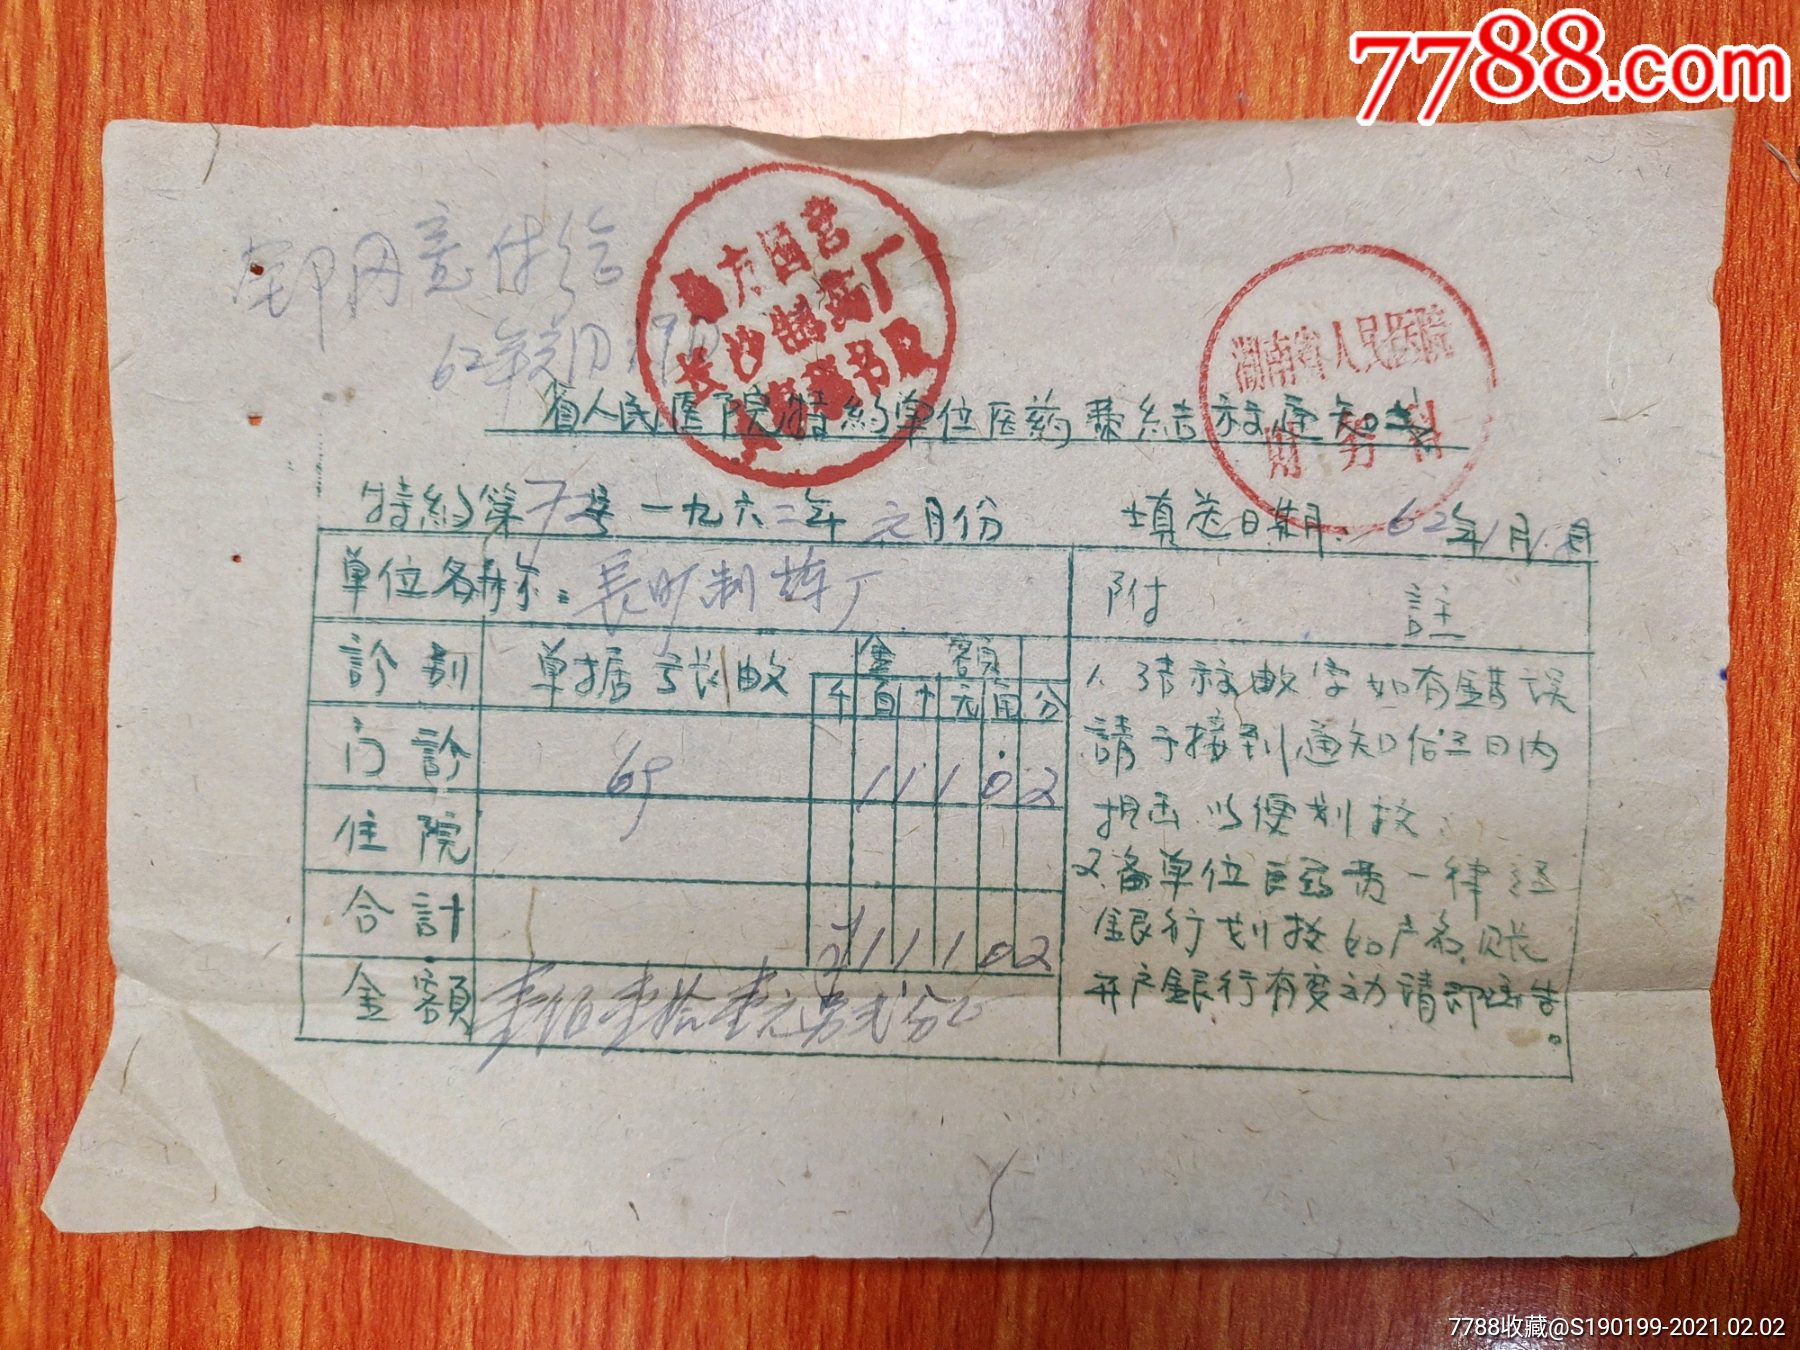 7788.com
同意付给
62年元月19日
方国营
长沙制药厂
湖南省人民医院
财务科
省人民医院特約单位医药费結核通知书
特約第72号 一九六二年 元月份 填送日期 62年1月 日
单位名称: 長沙制药厂
附 註
診别 单据张数 金額
千百十元角分
1. 請核数字如有錯誤
請于接到通知后三日内
提出以便划拨
门診 69 111.02
住院
2. 各单位医药费一律经
銀行划拨如户名.账
合計 111 02
金額 壹佰壹拾壹元另弍分
开户銀行有变动請即函告。
7788收藏@S190199-2021.02.02